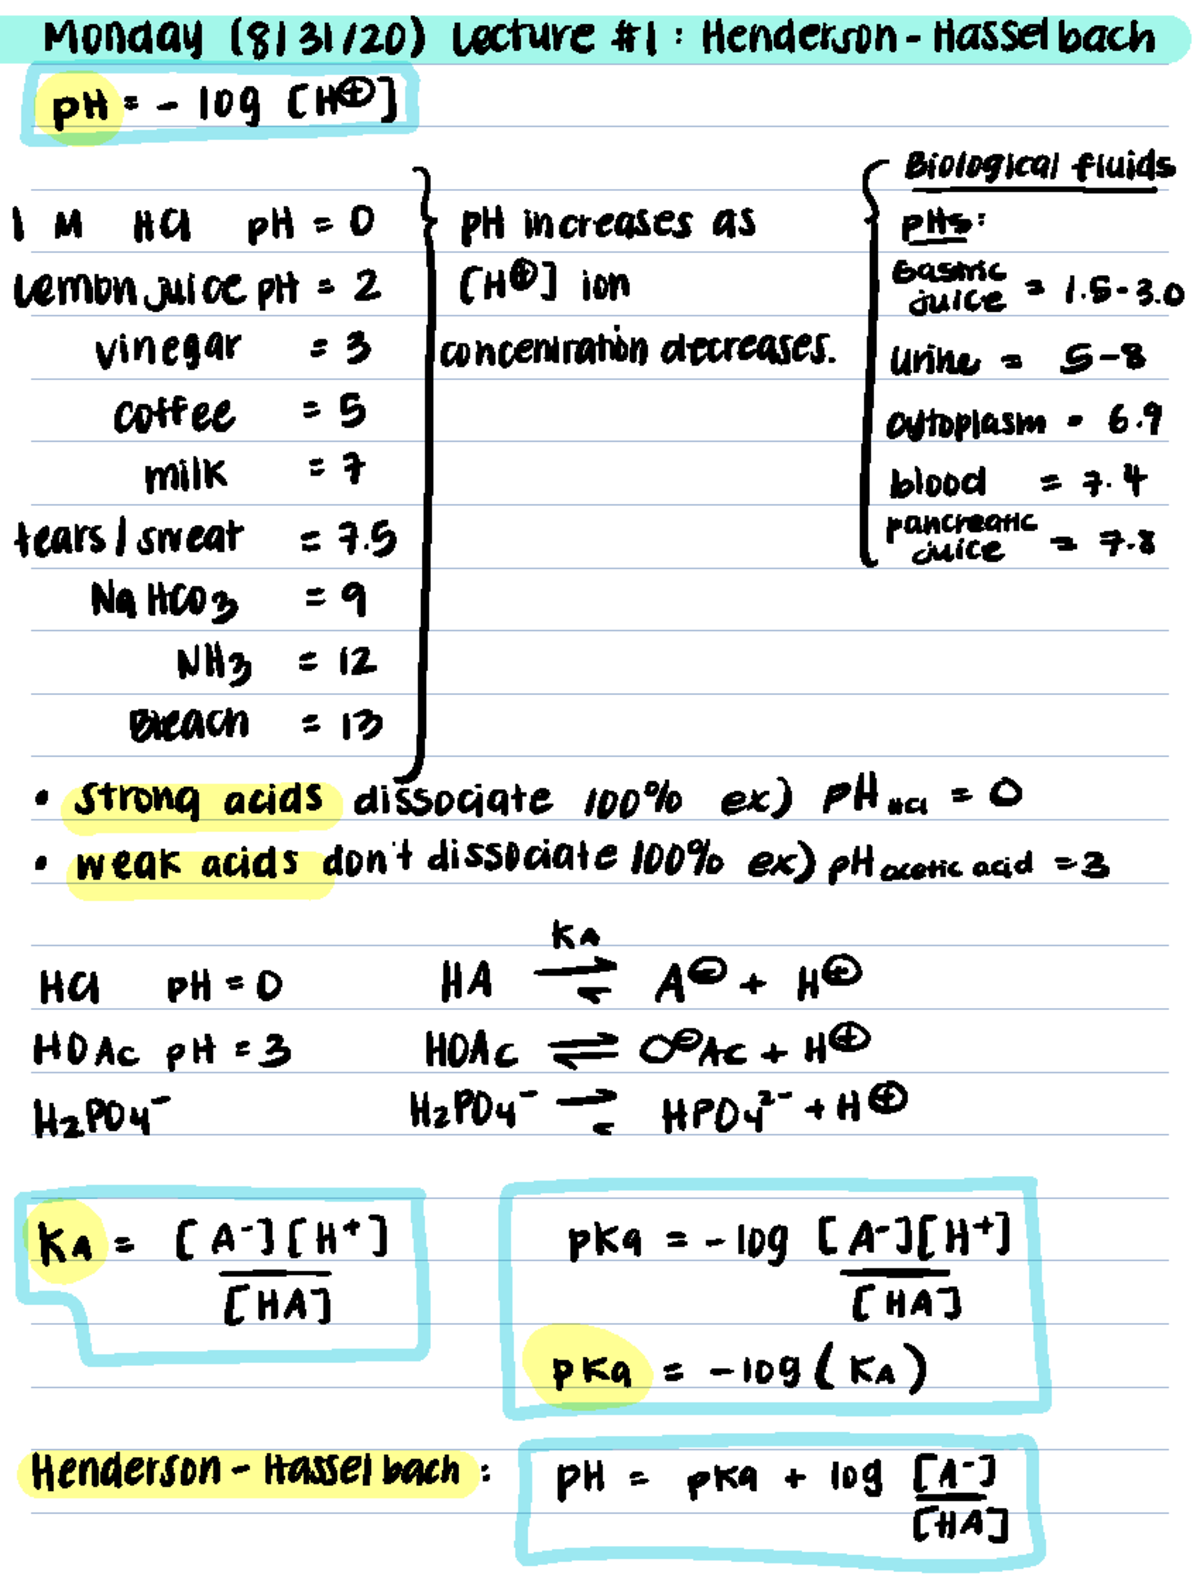 Monday (8/31/20) Lecture #1: Henderson-Hasselbach
pH = - log [H⊕]
1 M HCl pH = 0
Lemon juice pH = 2
vinegar = 3
coffee = 5
milk = 7
tears/sweat = 7.5
NaHCO3 = 9
NH3 = 12
Bleach = 13
pH increases as
[H⊕] ion
concentration decreases.
Biological fluids
pHs:
Gastric
juice = 1.5-3.0
Urine = 5-8
cytoplasm = 6.9
blood = 7.4
pancreatic
juice = 7.8
• strong acids dissociate 100% ex) pH HCl = 0
• weak acids don't dissociate 100% ex) pH acetic acid = 3
KA
HCl pH = 0 HA ⇌ A⊖ + H⊕
HOAc pH = 3 HOAc ⇌ O⊖Ac + H⊕
H2PO4⁻ H2PO4⁻ ⇌ HPO4²⁻ + H⊕
KA = [A⁻][H⁺]
[HA]
pKa = -log [A⁻][H⁺]
[HA]
pKa = -log (KA)
Henderson-Hasselbach: pH = pKa + log [A⁻]
[HA]